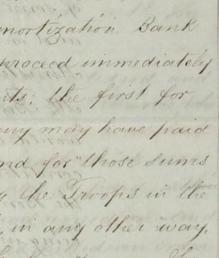 mortization Bank
proceed immediately
the first for
may have paid
and for those sums
the Troops in the
in any other way,